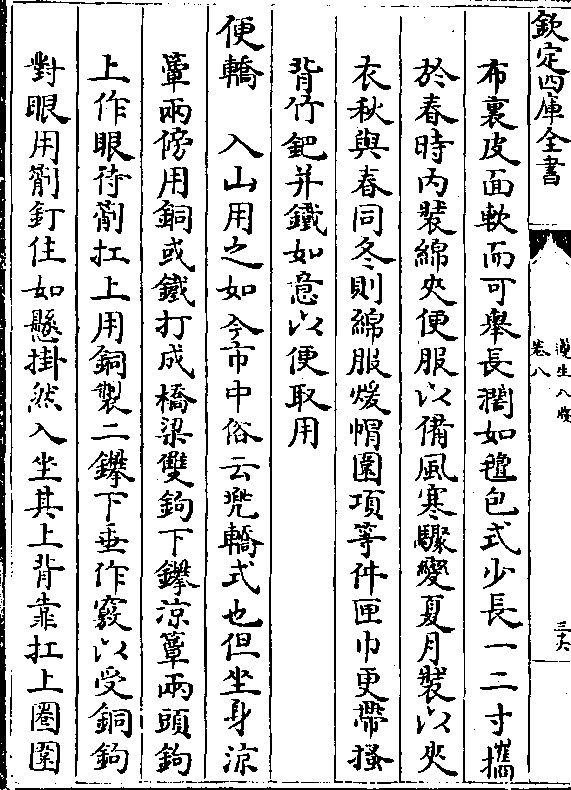 欽定四庫全書
遵生八牋
卷八
三六
布裏皮面軟而可舉長濶如氊包式少長一二寸攜
於春時內裝綿夾便服以備風寒驟變夏月裝以夾
衣秋與春同冬則綿服煖帽圍項等件匣巾更帶搔
背竹鈀并鐵如意以便取用
便轎　入山用之如今市中俗云兠轎式也但坐身涼
簟兩傍用銅或鐵打成橋梁雙鉤下鑻涼簟兩頭鉤
上作眼待劄扛上用銅製二鑻下垂作竅以受銅鉤
對眼用劄釘住如懸掛然入坐其上背靠扛上圈圍